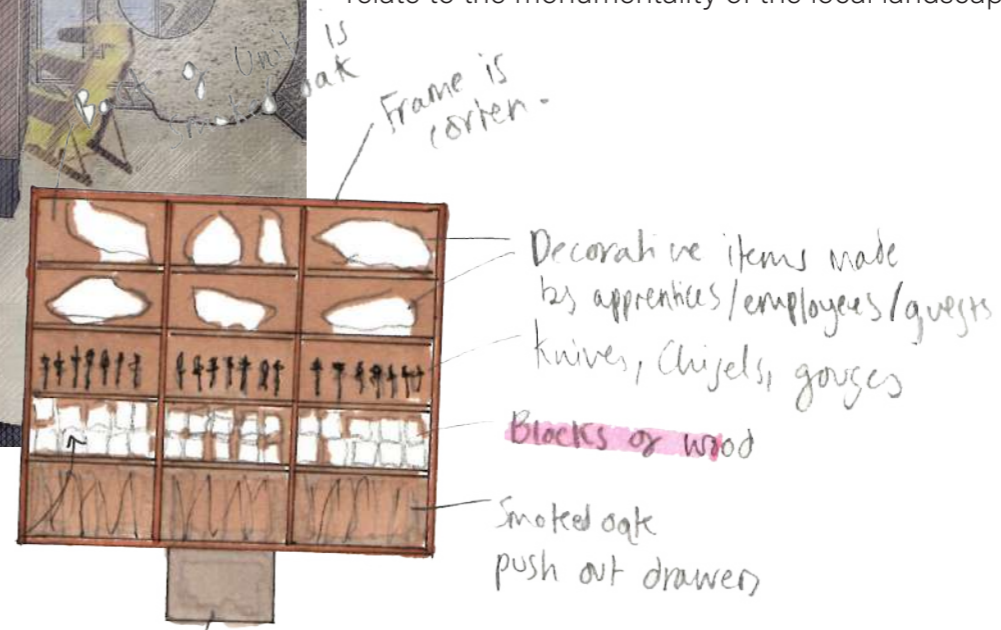 relate to the monumentality of the local landscap
is
oak
Frame is
corten.
Decorative items made
by apprentices/employees/guests
knives, Chisels, gouges
Blocks of wood
Smoked oak
push out drawers